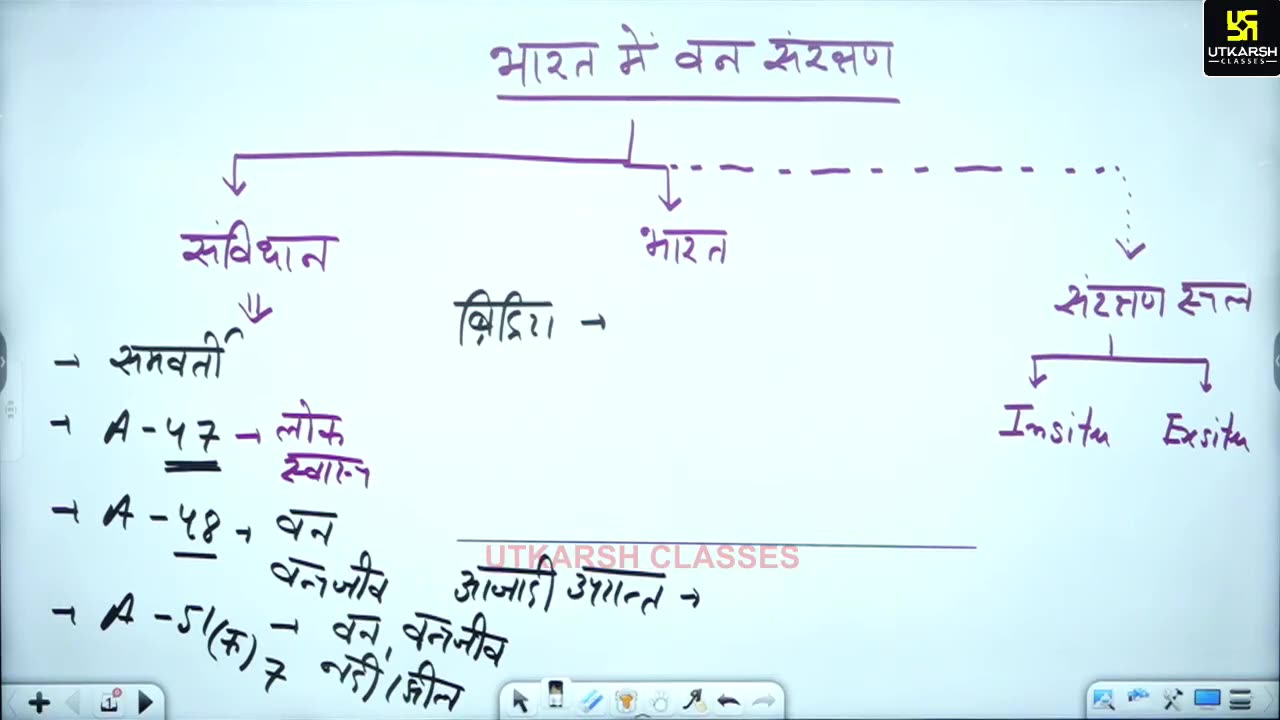 भारत में वन संरक्षण
UTKARSH
CLASSES
संविधान
भारत
संरक्षण स्थल
Insitu
Exsitu
→ समवर्ती
→ A-47 → लोक
स्वास्थ्य
→ A-48 → वन
वन्यजीव
→ A-51(क) → वन, वन्यजीव
7 नदी, झील
ब्रिटिश →
UTKARSH CLASSES
आजादी उपरान्त →
1